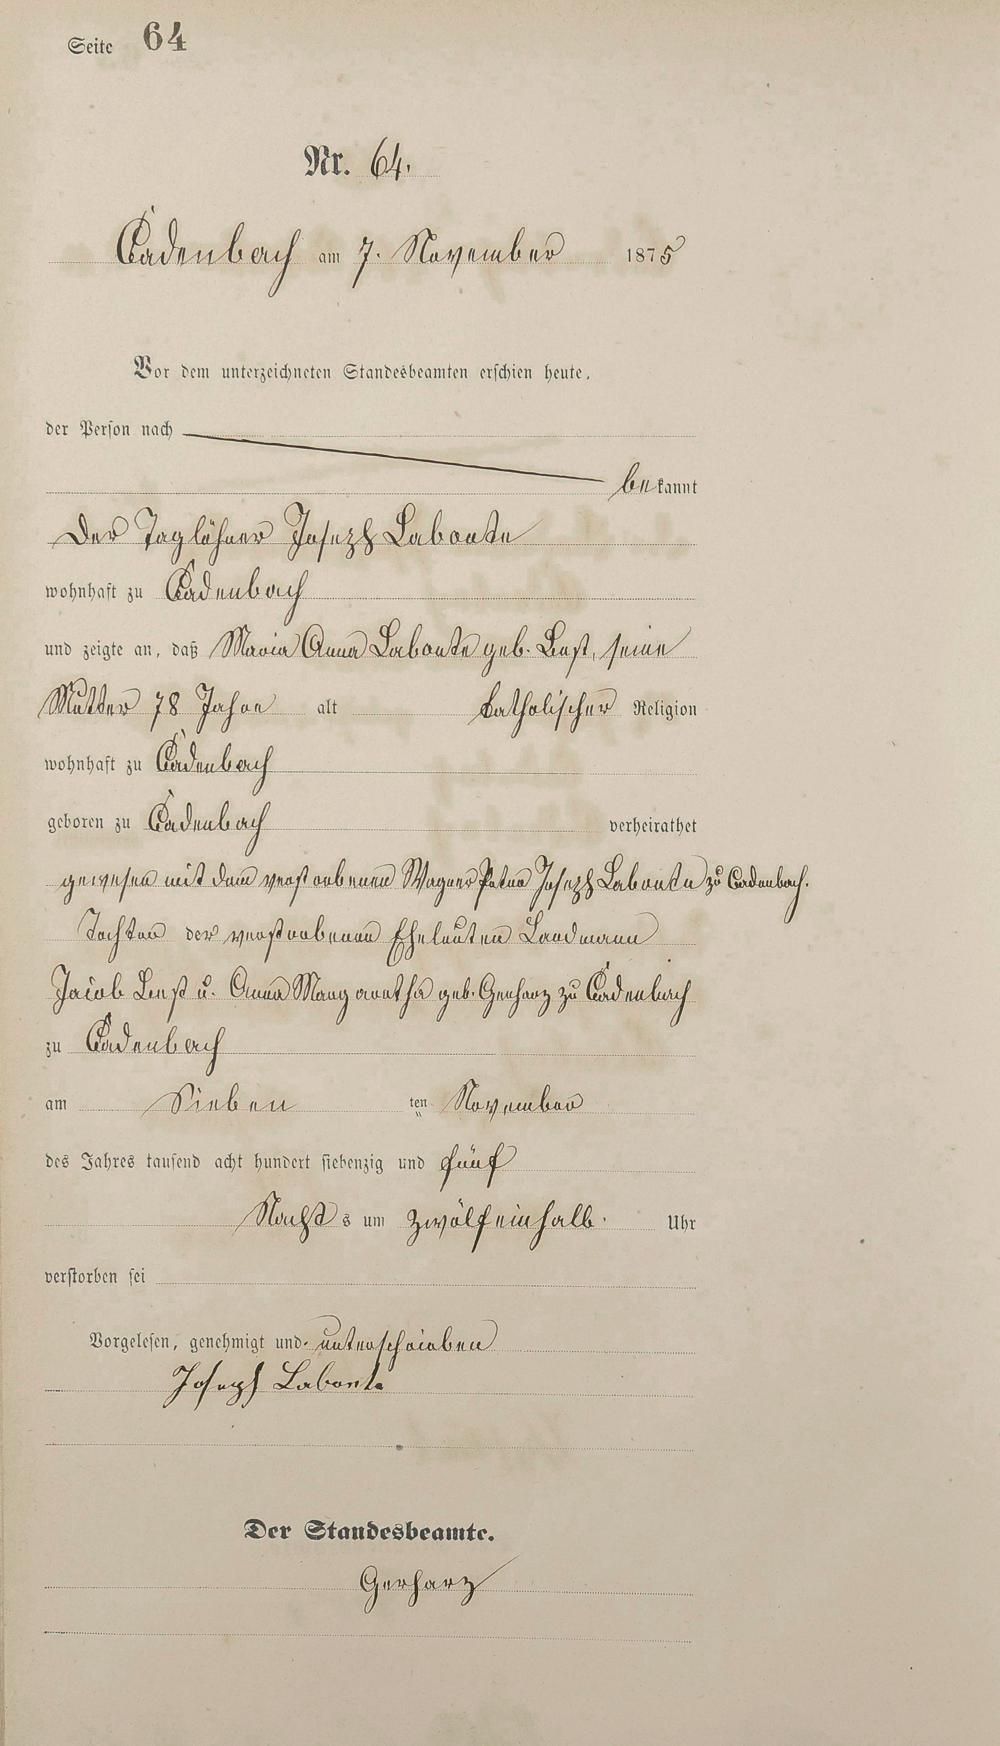 Seite 64
Nr. 64.
Cadenbach am 7. November 1875
Vor dem unterzeichneten Standesbeamten erschien heute,
der Person nach
bekannt
Der Taglöhner Joseph Labonte
wohnhaft zu Cadenbach
und zeigte an, daß Maria Anna Labonte geb. Best, seine
Mutter 78 Jahre alt katholischer Religion
wohnhaft zu Cadenbach
geboren zu Cadenbach verheirathet
gewesen mit dem verstorbenen Wagner Peter Joseph Labonte zu Cadenbach.
Tochter der verstorbenen Eheleuten Landmann
Jacob Best u. Anna Margaretha geb. Gerharz zu Cadenbach
zu Cadenbach
am Sieben ten November
des Jahres tausend acht hundert siebenzig und fünf
Nachts um zwölfeinhalb Uhr
verstorben sei
Vorgelesen, genehmigt und unterschrieben
Joseph Labonte
Der Standesbeamte.
Gerharz